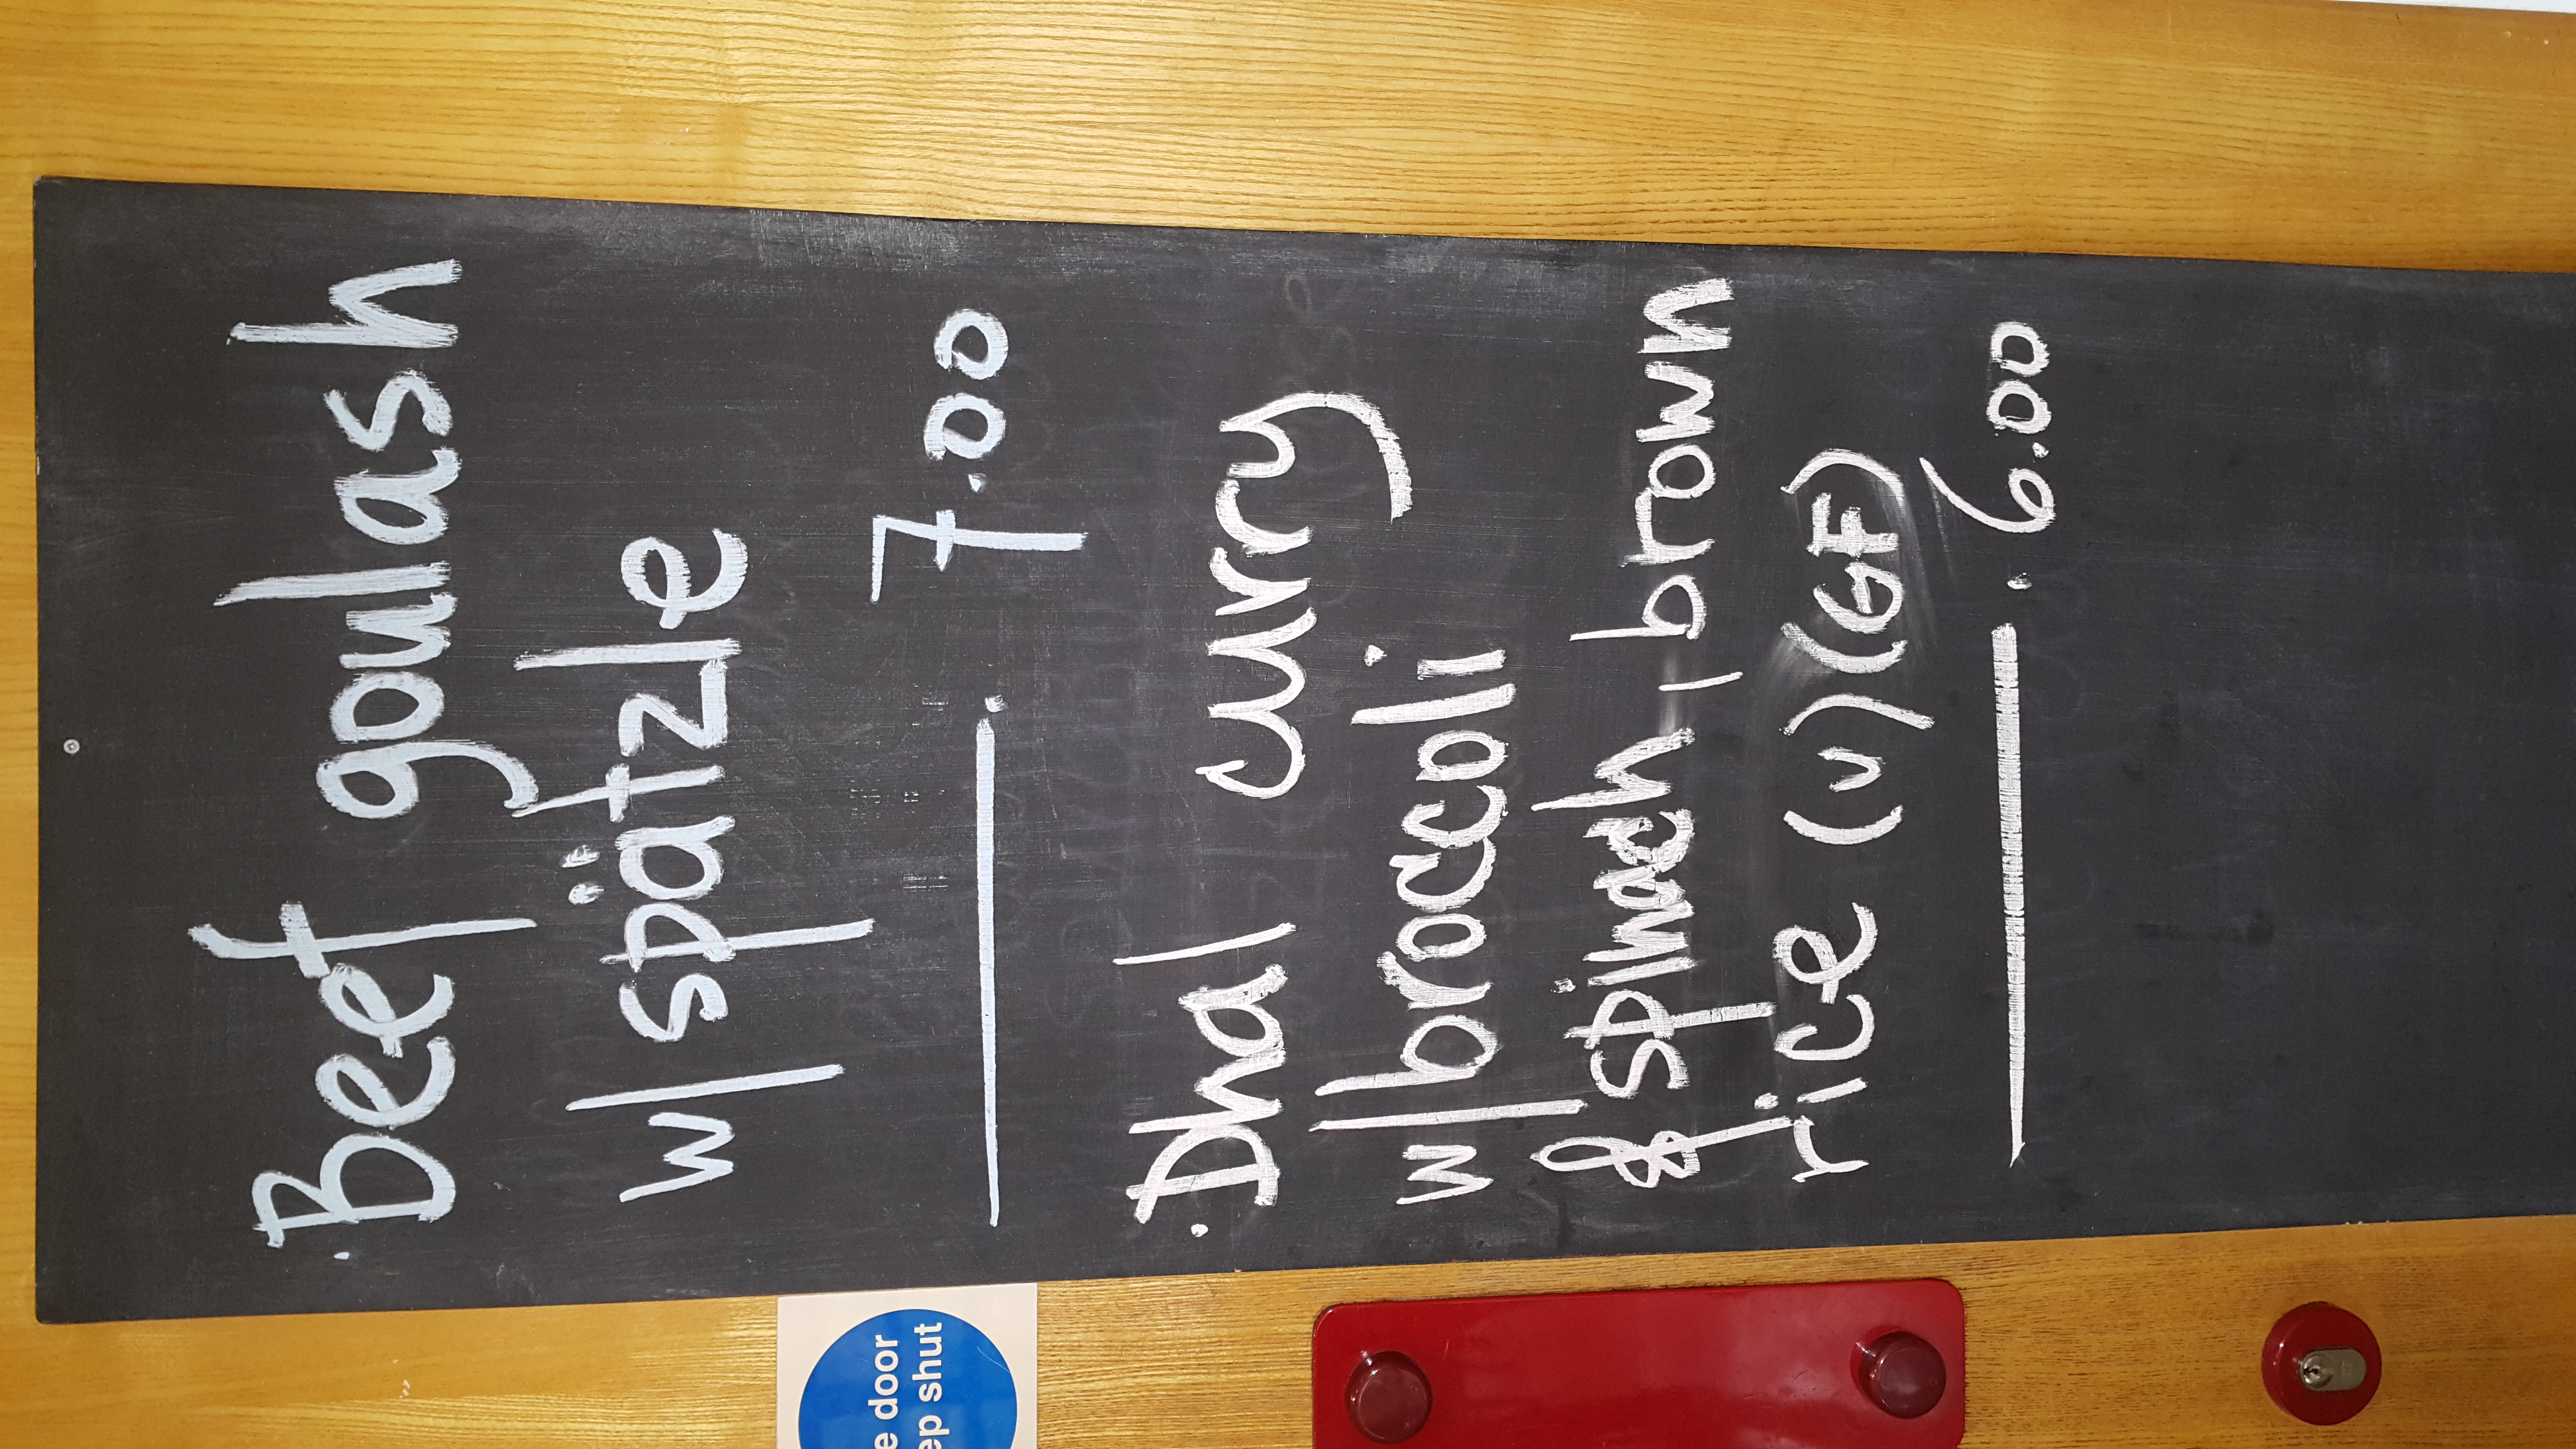 ·Beef goulash
w/ spätzle
7.00
·Dhal curry
w/broccoli
& spinach, brown
rice (v) (GF)
6.00
e door
ep shut